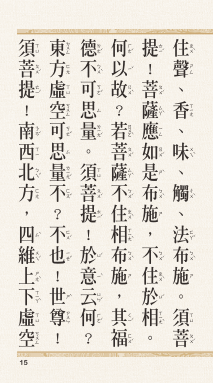 住聲、香、味、觸、法布施。須菩
提！菩薩應如是布施，不住於相。
何以故？若菩薩不住相布施，其福
德不可思量。須菩提！於意云何？
東方虛空可思量不？不也！世尊！
須菩提！南西北方，四維上下虛空
15